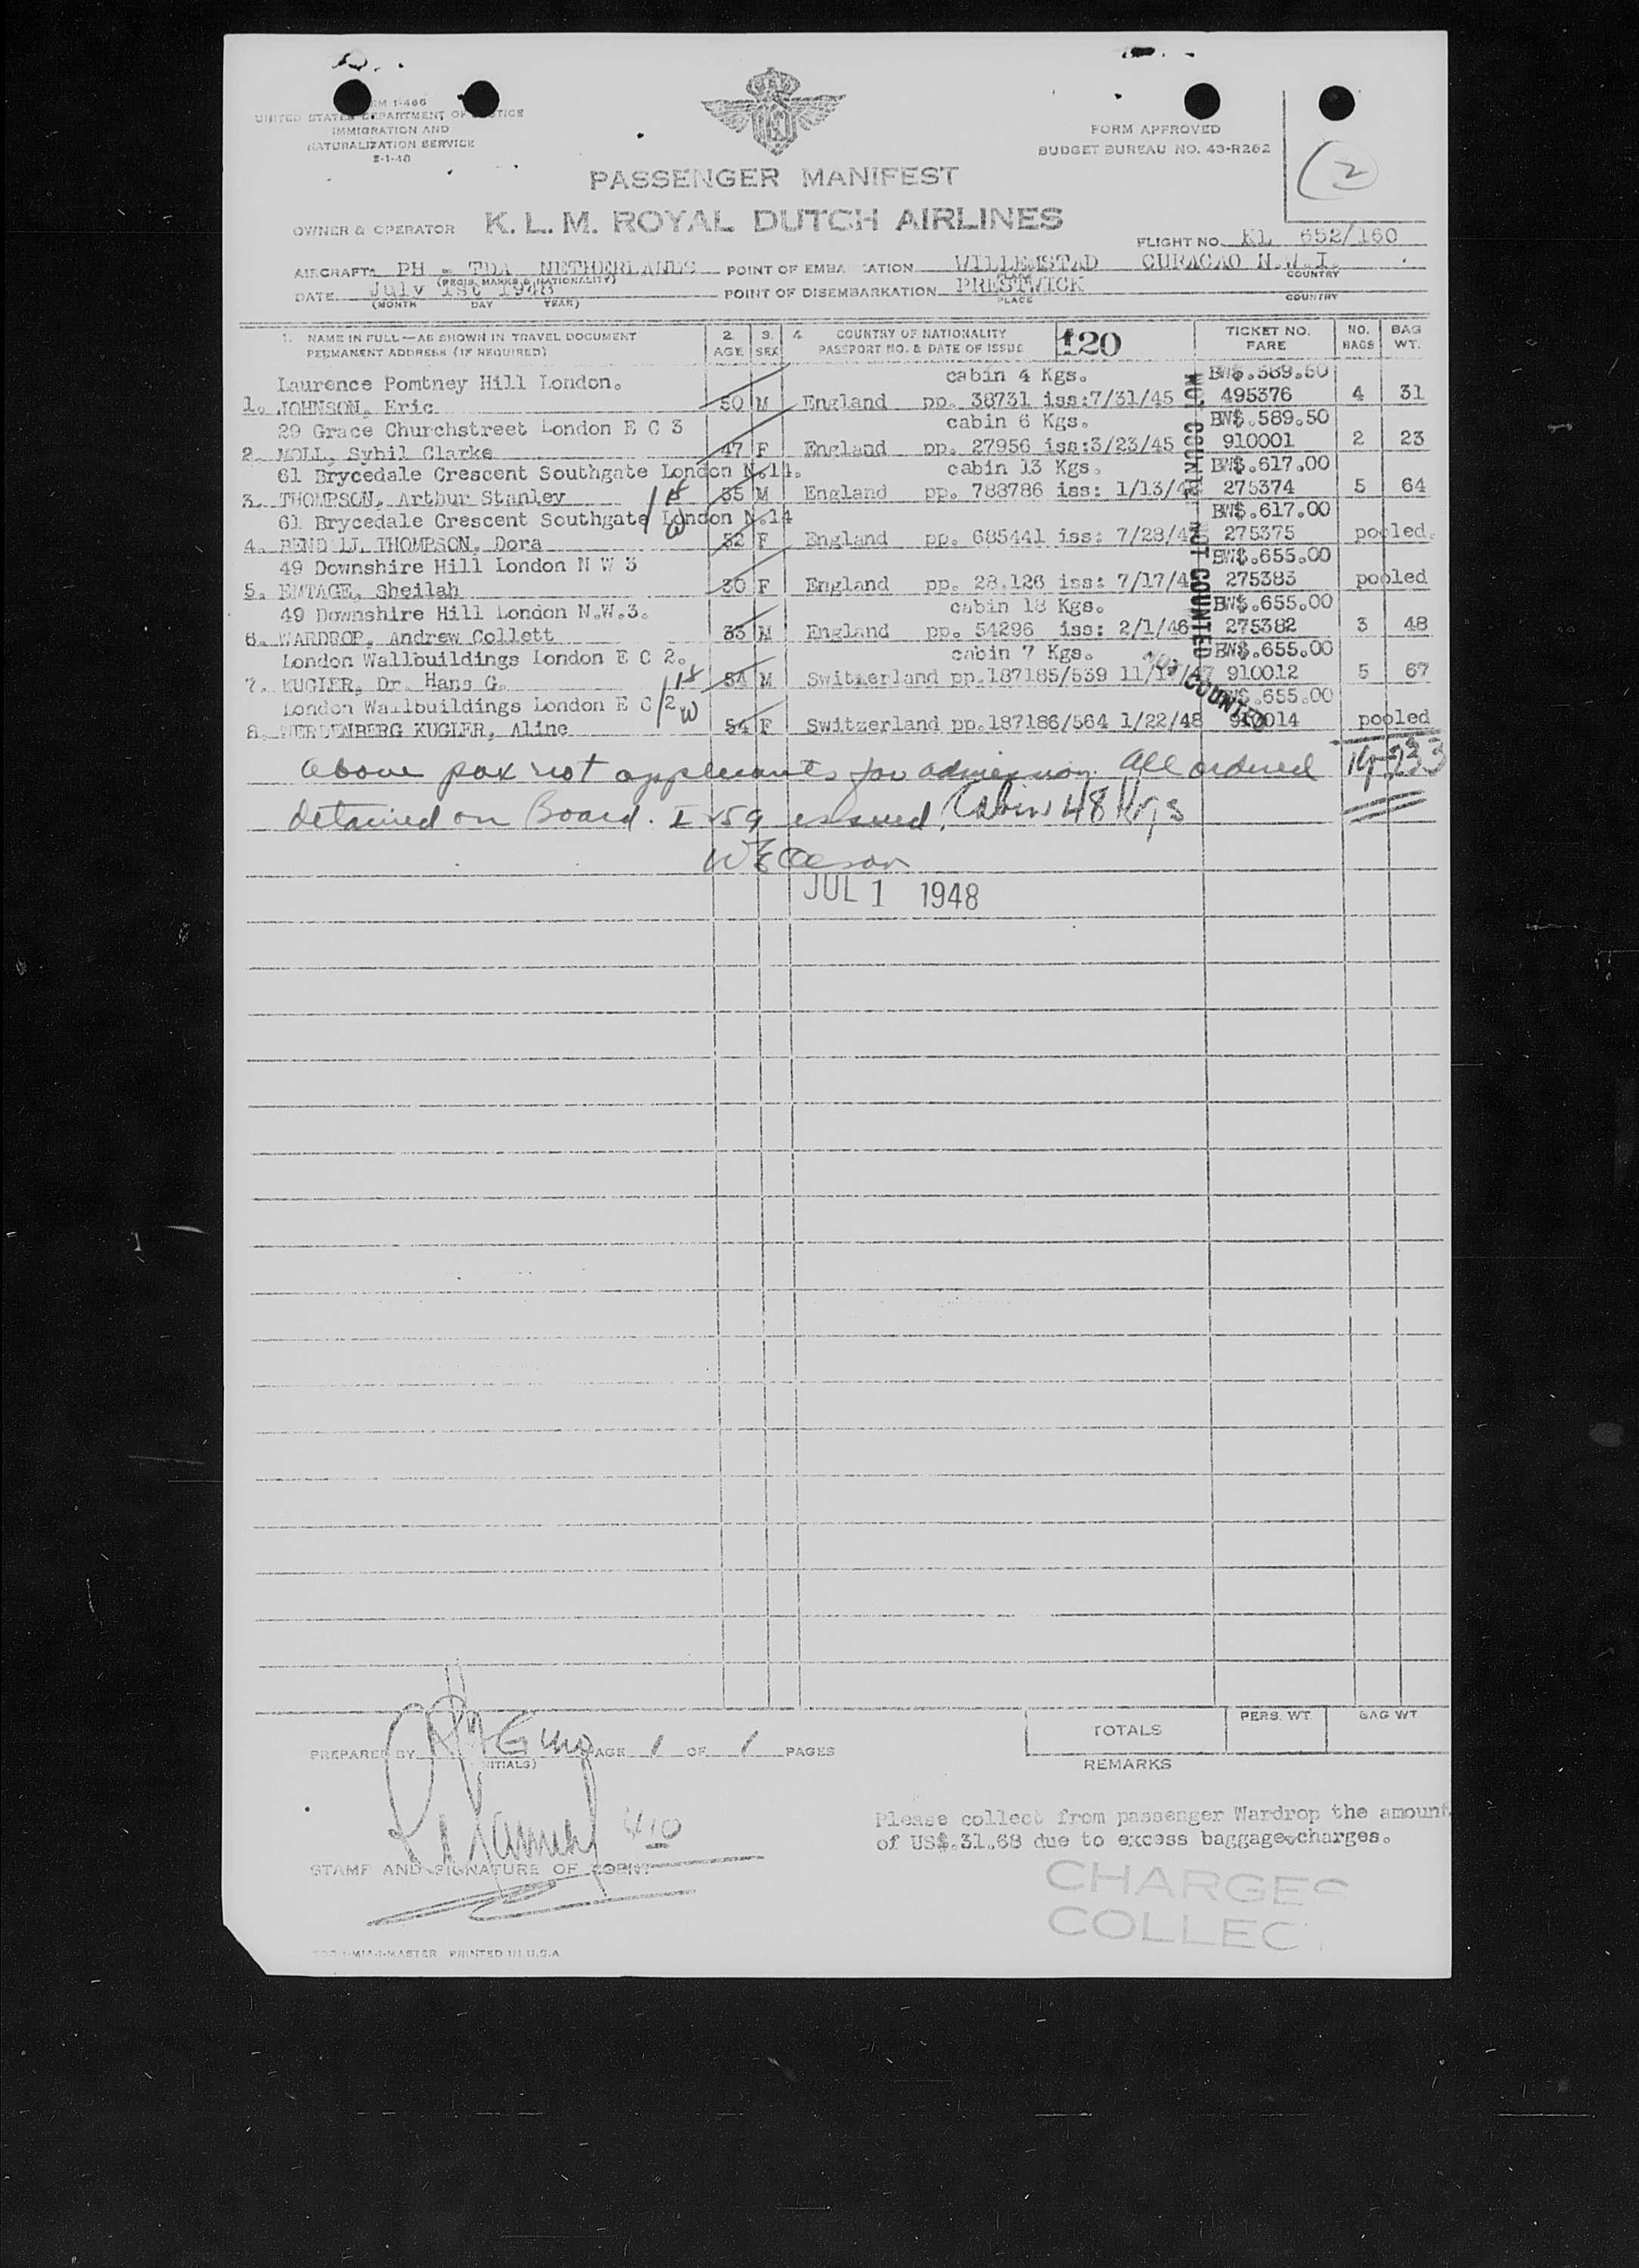 FORM APPROVED
BUDGET BUREAU NO. 43-R262
UNITED STATES DEPARTMENT OF JUSTICE
IMMIGRATION AND
NATURALIZATION SERVICE
2
PASSENGER MANIFEST
OWNER & OPERATOR K. L. M. ROYAL DUTCH AIRLINES
FLIGHT NO. KL 652/160
AIRCRAFT: PH - TDA NETHERLANDS POINT OF EMBARKATION WILLEMSTAD CURACAO N.W.I.
(REGIS. MARKS & NATIONALITY) PLACE COUNTRY
DATE July 1st 1948 POINT OF DISEMBARKATION PRESTWICK
(MONTH DAY YEAR) PLACE COUNTRY
1. NAME IN FULL—AS SHOWN IN TRAVEL DOCUMENT 2. 3. 4. COUNTRY OF NATIONALITY 120 TICKET NO. NO. BAG
PERMANENT ADDRESS (IF REQUIRED) AGE SEX PASSPORT NO. & DATE OF ISSUE FARE BAGS WT.
Laurence Pomtney Hill London. cabin 4 Kgs. BW$.589.50
1. JOHNSON, Eric 50 M England pp. 38731 iss:7/31/45 495376 4 31
29 Grace Churchstreet London E C 3 cabin 6 Kgs. BW$.589.50
2. MOLL, Sybil Clarke 47 F England pp. 27956 iss:3/23/45 910001 2 23
61 Brycedale Crescent Southgate London N.14. cabin 13 Kgs. BW$.617.00
3. THOMPSON, Arthur Stanley 35 M England pp. 788786 iss: 1/13/4 275374 5 64
61 Brycedale Crescent Southgate London N.14 BW$.617.00
4. THOMPSON, Dora 32 F England pp. 685441 iss: 7/28/4 275375 pooled.
49 Downshire Hill London N W 3 BW$.655.00
5. EMTAGE, Sheilah 30 F England pp. 28.126 iss: 7/17/4 275383 pooled
49 Downshire Hill London N.W.3. cabin 18 Kgs. BW$.655.00
6. WARDROP, Andrew Collett 33 M England pp. 54296 iss: 2/1/46 275382 3 48
London Wallbuildings London E C 2. cabin 7 Kgs. BW$.655.00
7. KUGLER, Dr. Hans G. 54 M Switzerland pp.187185/539 11/17/47 910012 5 67
London Wallbuildings London E C 2 BW$.655.00
8. WERDENBERG KUGLER, Aline 54 F Switzerland pp.187186/564 1/22/48 910014 pooled
NOT COUNTED
NOT COUNTED
NOT COUNTED
above pax not applicants for admission. All ordered 19-233
detained on Board. I 259 issued. Cabin 48 Kgs
JUL 1 1948
TOTALS PERS. WT. BAG WT
PREPARED BY (INITIALS) PAGE 1 OF 1 PAGES
REMARKS
Please collect from passenger Wardrop the amount
of US$.31.68 due to excess baggage charges.
STAMP AND SIGNATURE OF AGENT
CHARGES
COLLECT
PRINTED IN U.S.A